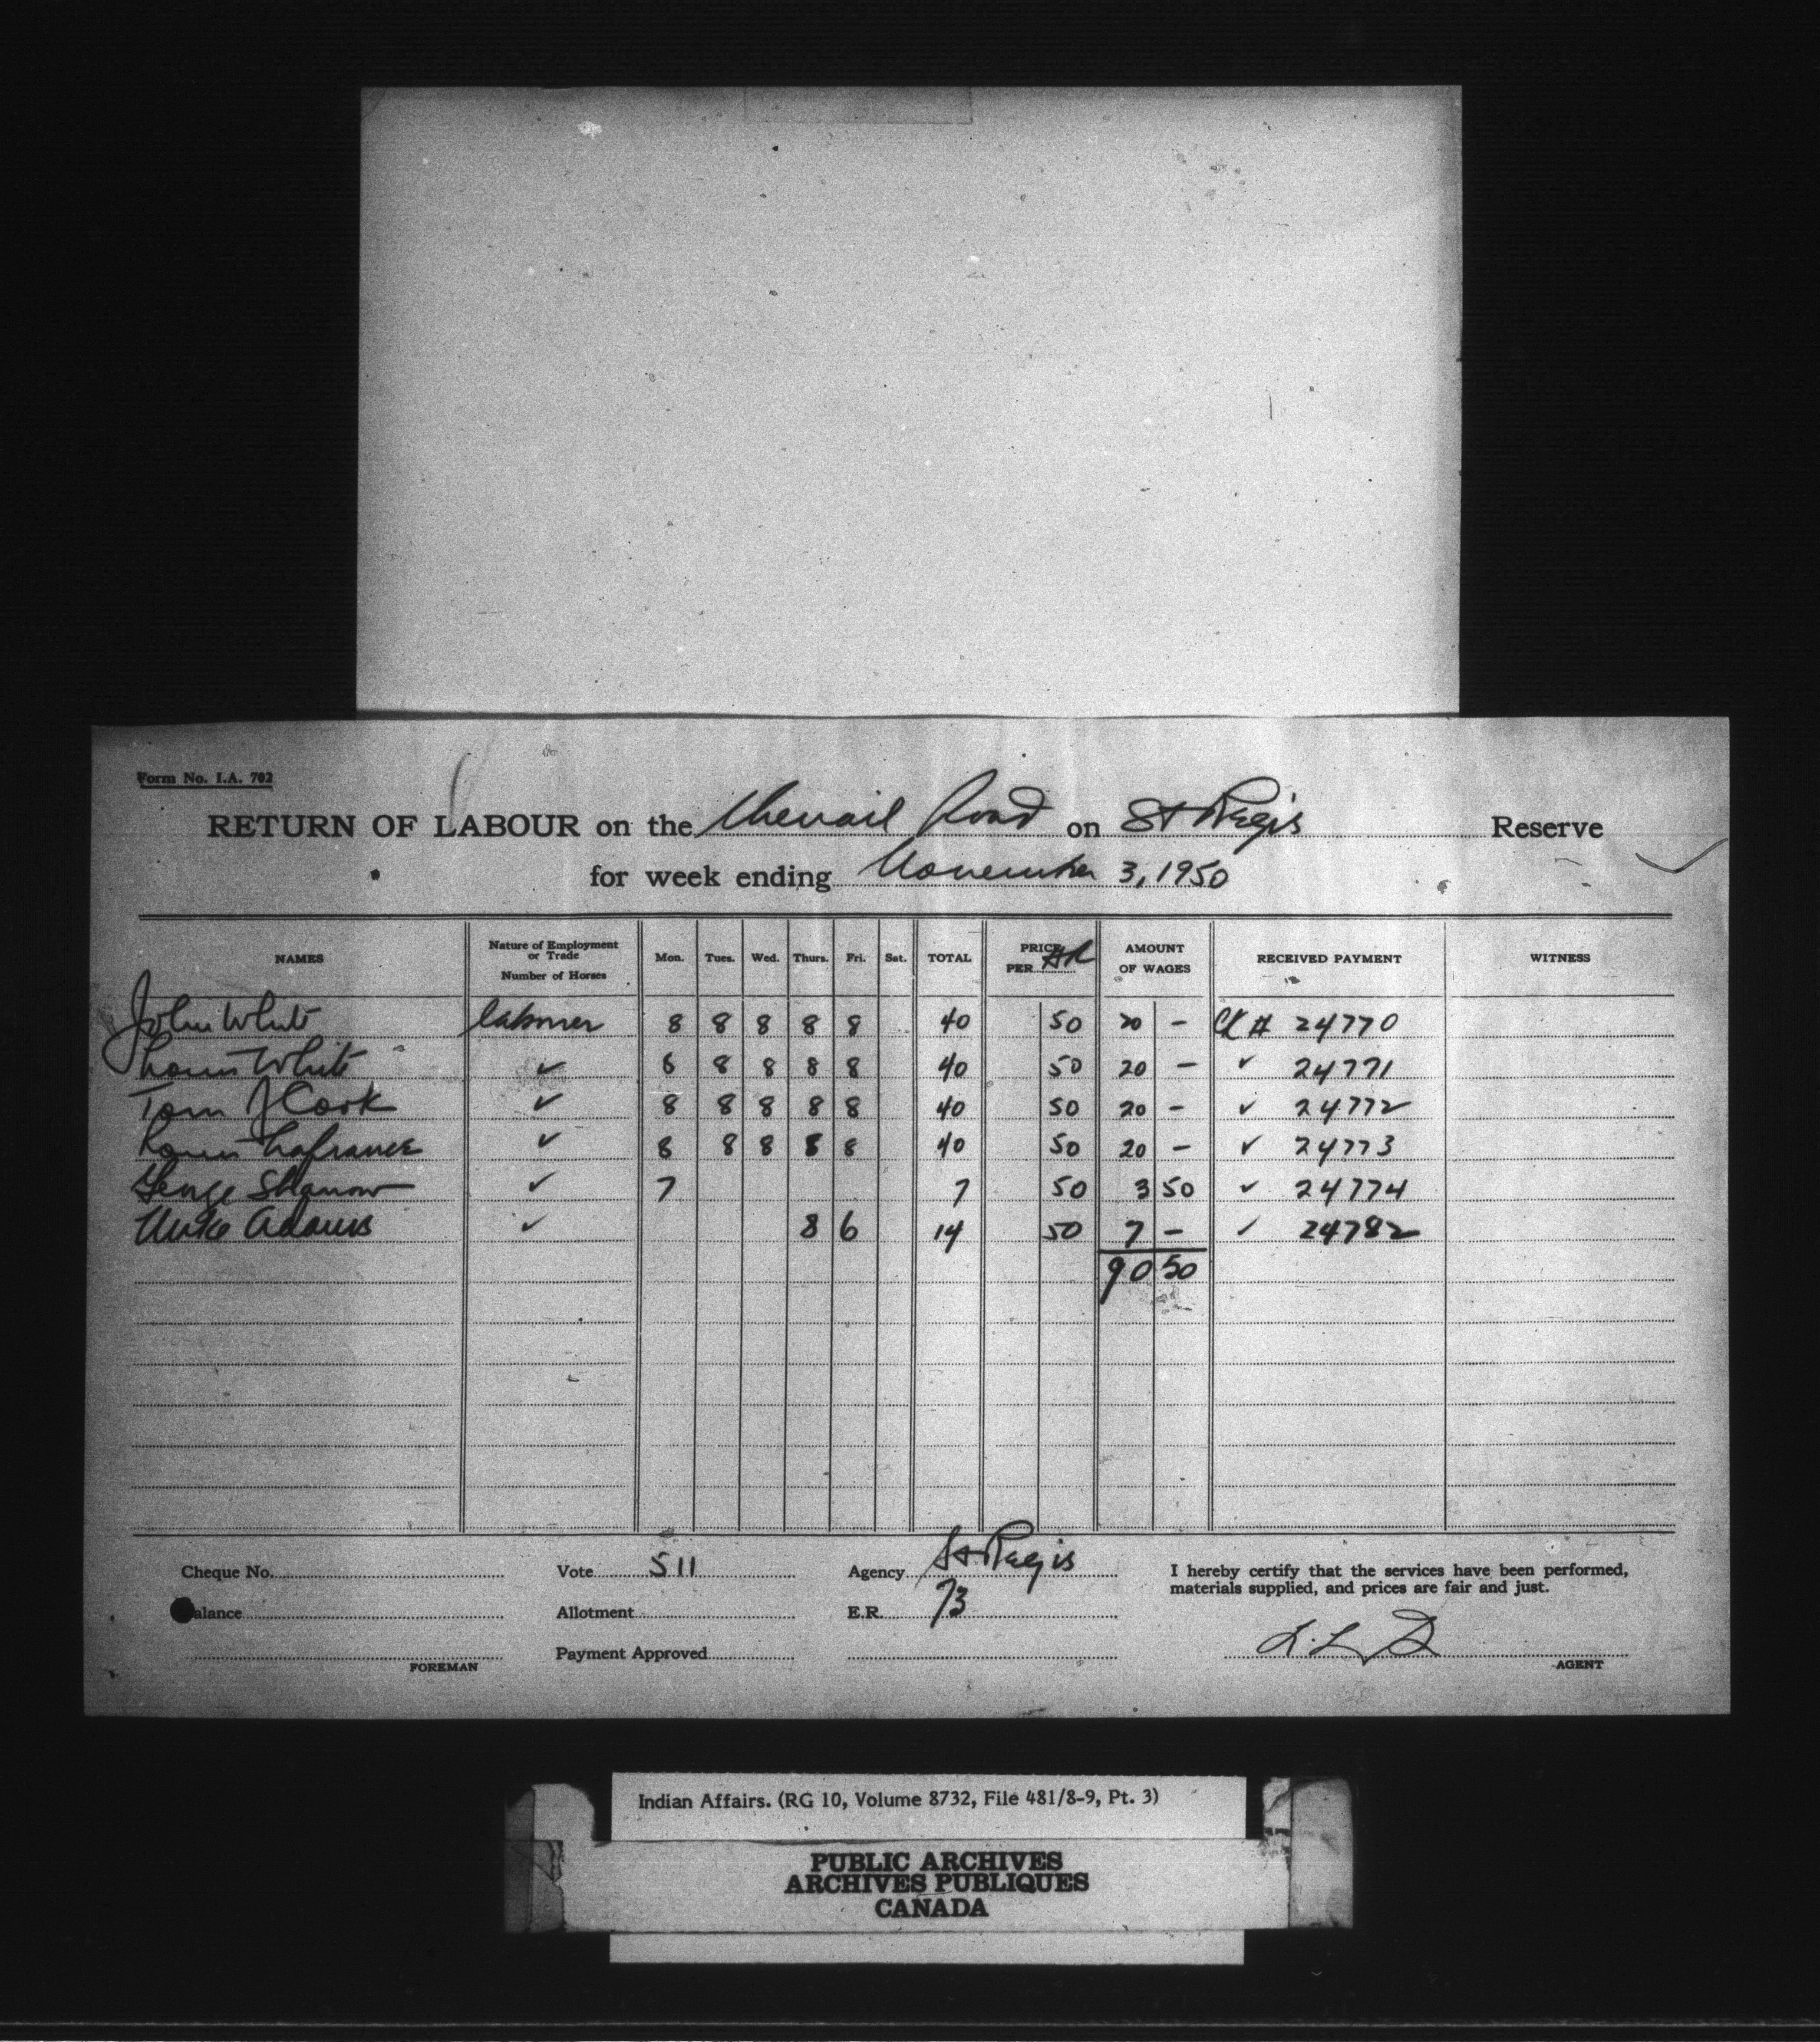 Form No. I.A. 702
RETURN OF LABOUR on the Chenail Road on St Regis Reserve
for week ending November 3, 1950
NAMES Nature of Employment or Trade Number of Horses Mon. Tues. Wed. Thurs. Fri. Sat. TOTAL PRICE PER HR AMOUNT OF WAGES RECEIVED PAYMENT WITNESS
John White labourer 8 8 8 8 8 40 50 20 - Ck # 24770
Louis White ✓ 8 8 8 8 8 40 50 20 - ✓ 24771
Tom J Cook ✓ 8 8 8 8 8 40 50 20 - ✓ 24772
Louis Lafrance ✓ 8 8 8 8 8 40 50 20 - ✓ 24773
George ✓ 7 7 50 3 50 ✓ 24774
Mike Adams ✓ 8 6 14 50 7 - ✓ 24782
90 50
Cheque No. Vote 511 Agency St Regis I hereby certify that the services have been performed,
materials supplied, and prices are fair and just.
alance Allotment E.R. 73
FOREMAN Payment Approved AGENT
Indian Affairs. (RG 10, Volume 8732, File 481/8-9, Pt. 3)
PUBLIC ARCHIVES
ARCHIVES PUBLIQUES
CANADA